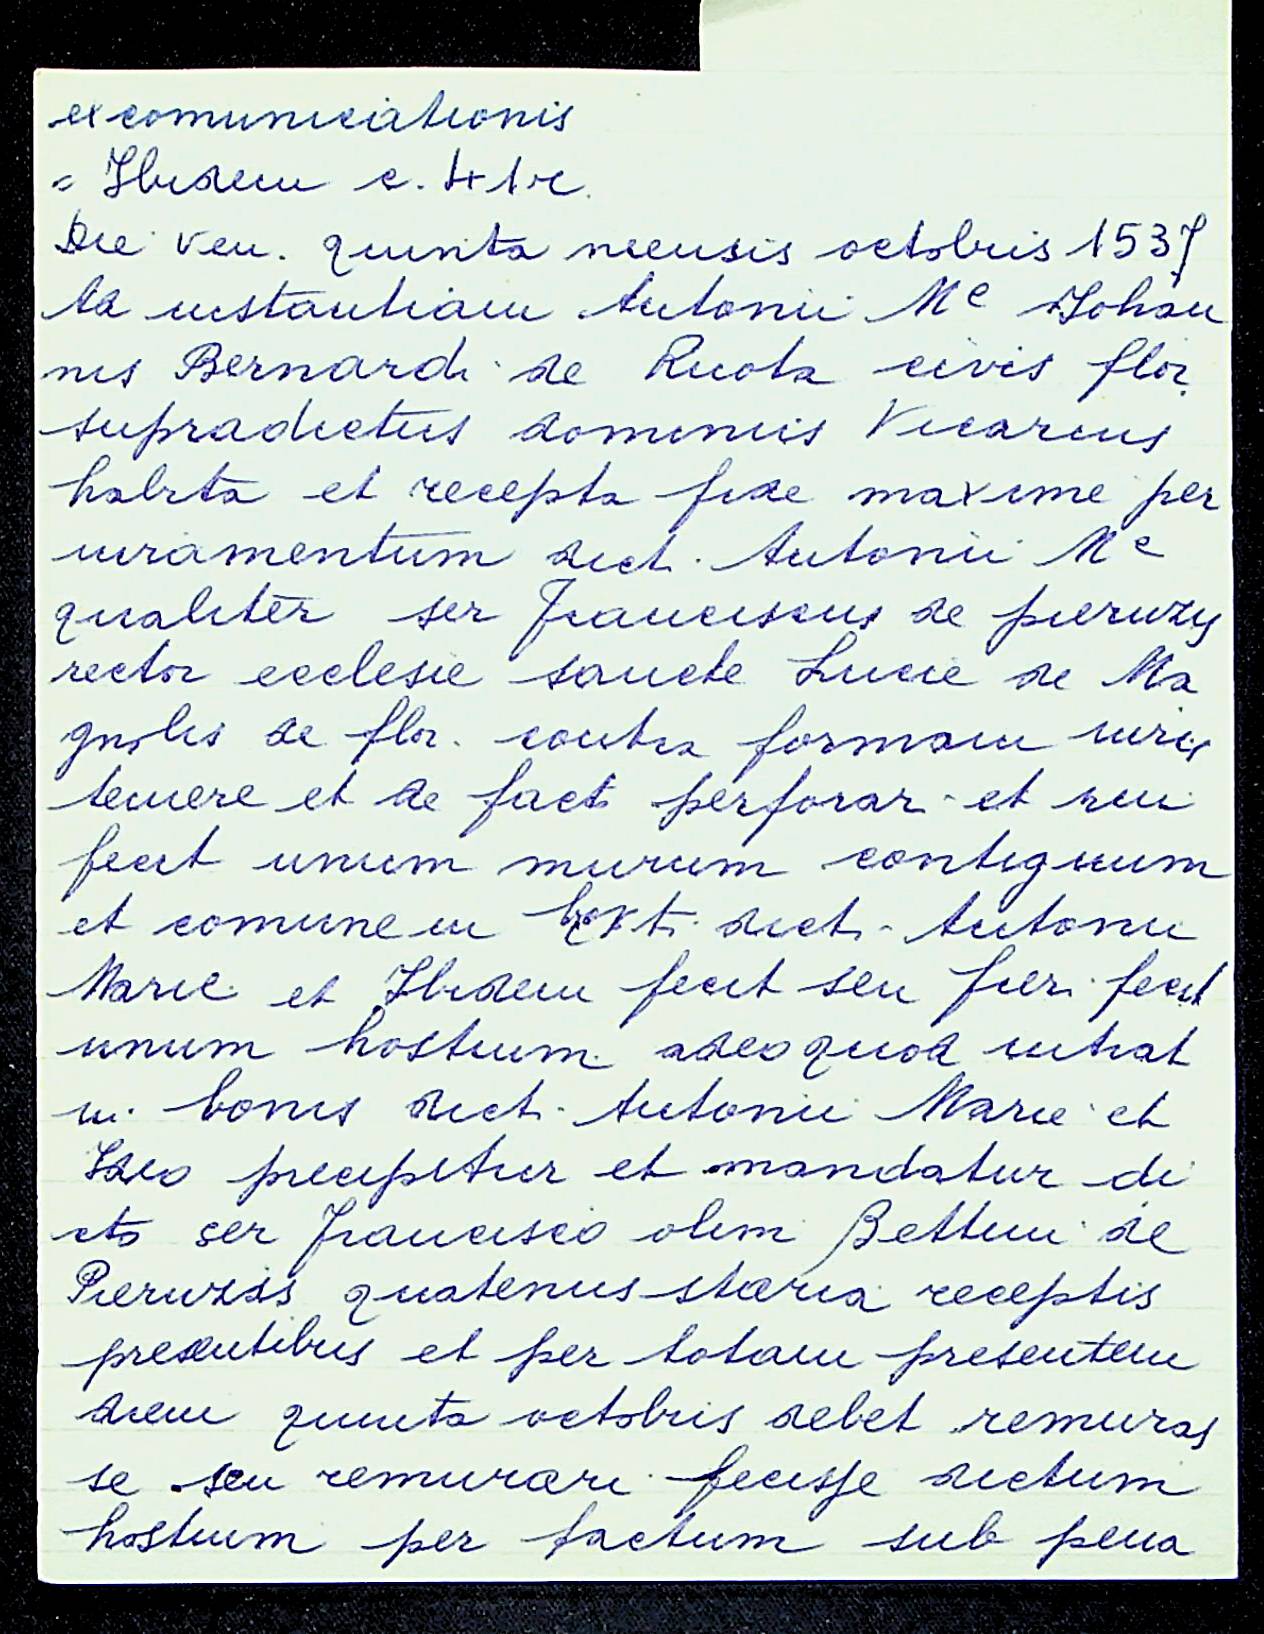 excomunicationis
= Ibidem c. 41r.
Die Ven. quinta mensis octobris 1537
Ad instantiam Antonii Mᵉ Johan
nis Bernardi de Ruota civis flor.
supradictus dominus Vicarius
habita et recepta fide maxime per
iuramentum dict. Antonii Mᵉ
qualiter ser Franciscus de pieruzy
rector ecclesie sancte Lucie de Ma
gnolis de flor. contra formam iuris
temere et de facto perforar. et
fecit unum murum contiguum
et comunem dict. Antonii
Marie et Ibidem fecit seu fieri fecit
unum hostium adeo quod intrat
in bonis dict. Antonii Marie et
Ideo precipitur et mandatur di
cto ser Francisco olim Bettini de
Pieruzis quatenus statria receptis
presentibus et per totam presentem
diem quinta octobris debet remuras
se seu remurari fecisse dictum
hostium per factum sub pena